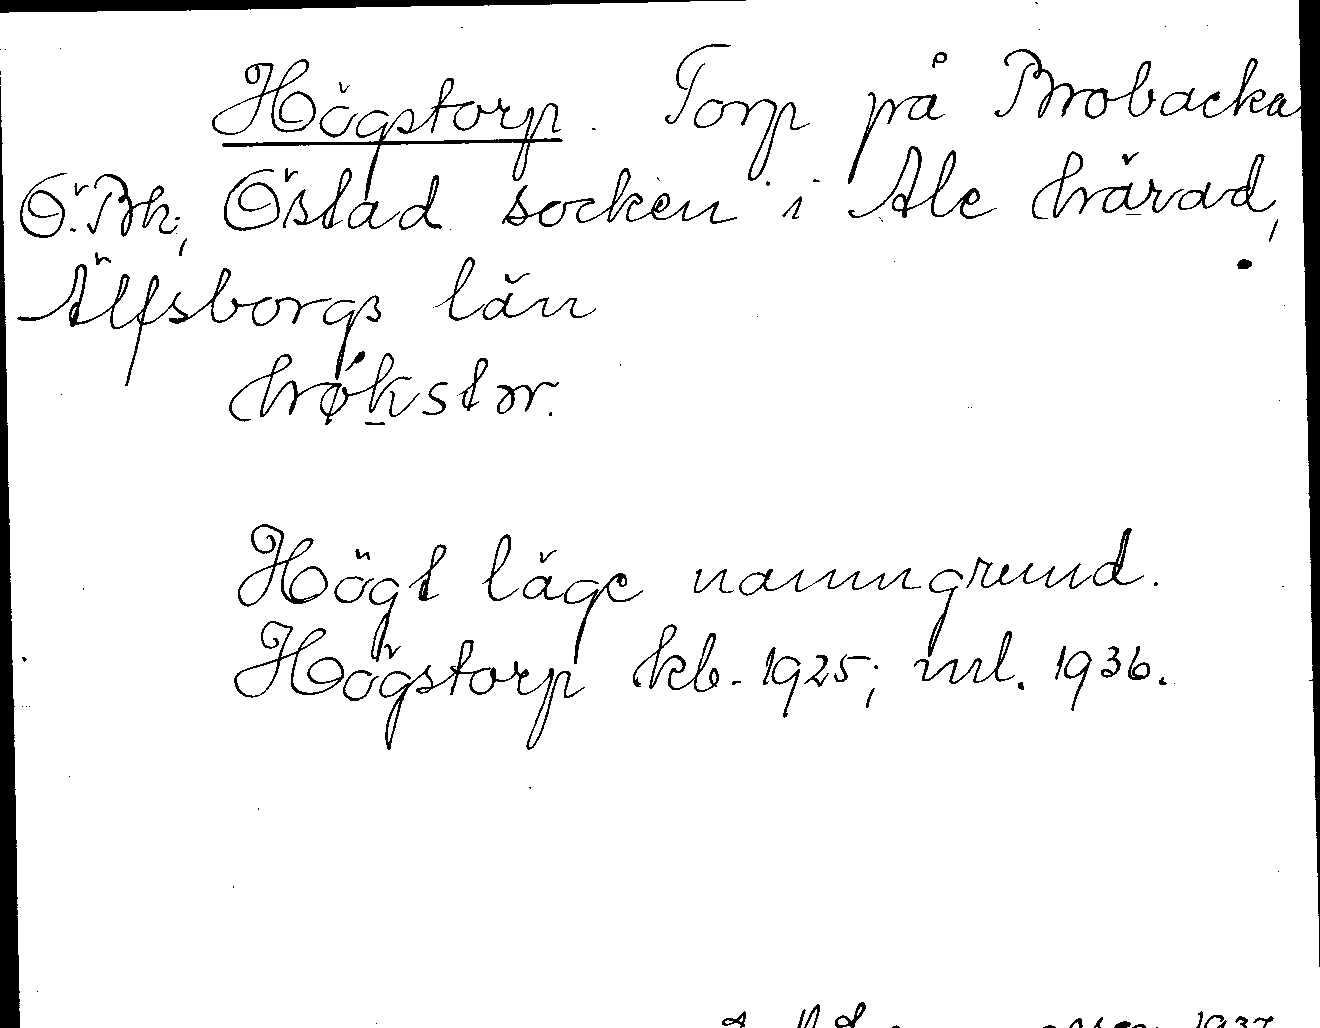 Högstorp. Torp på Brobacka
Ö. Bh, Östad socken i Ale härad,
Älfsborgs län
Högt läge namngrund.
Högstorp kb. 1925; ml. 1936.
1937